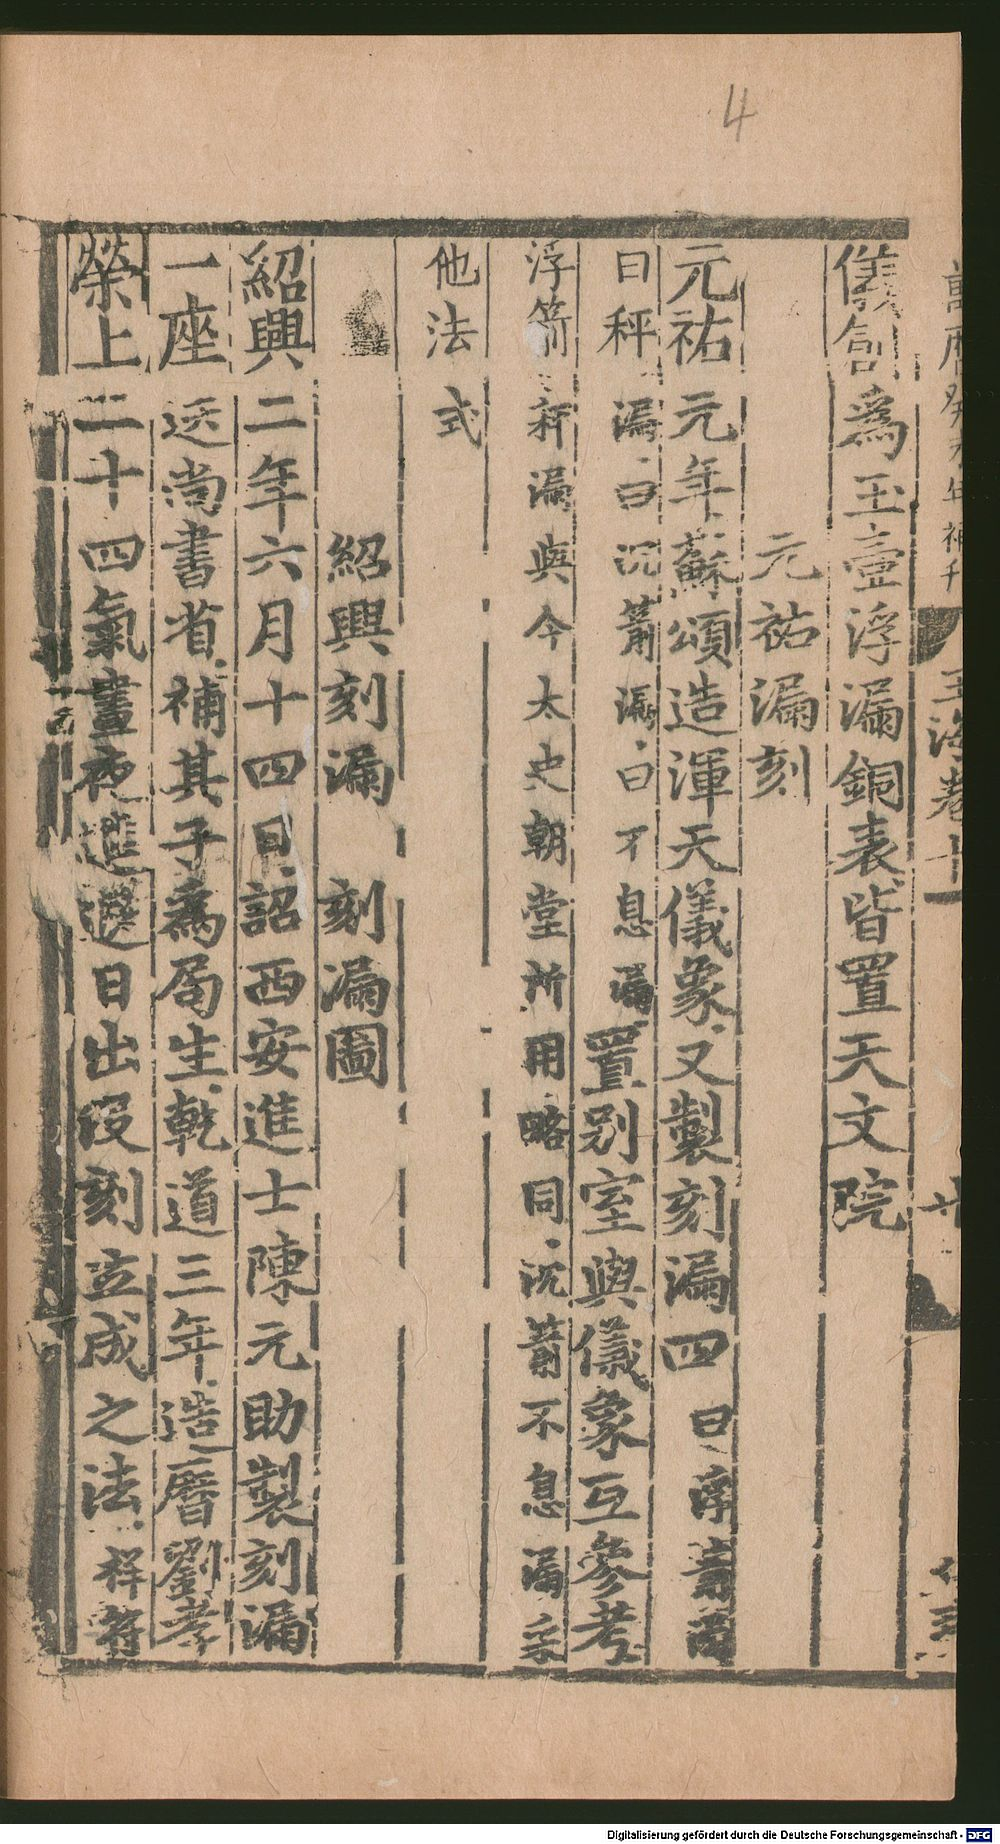 4
儀創為玉壺浮漏銅表皆置天文院
元祐漏刻
元祐元年蘇頌造渾天儀象又製刻漏四曰浮箭漏
曰秤漏曰沉箭漏曰不息漏置别室與儀象互參考
浮箭秤漏與今太史朝堂所用略同沉箭不息漏采
他法式
紹興刻漏 刻漏圖
紹興二年六月十四日詔西安進士陳元助製刻漏
一座送尚書省補其子為局生乾道三年造曆劉孝
榮上二十四氣晝夜進退日出没刻立成之法祥符
Digitalisierung gefördert durch die Deutsche Forschungsgemeinschaft - DFG